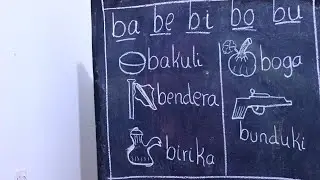 ba be bi bo bu
bakuli
bendera
birika
boga
bunduki